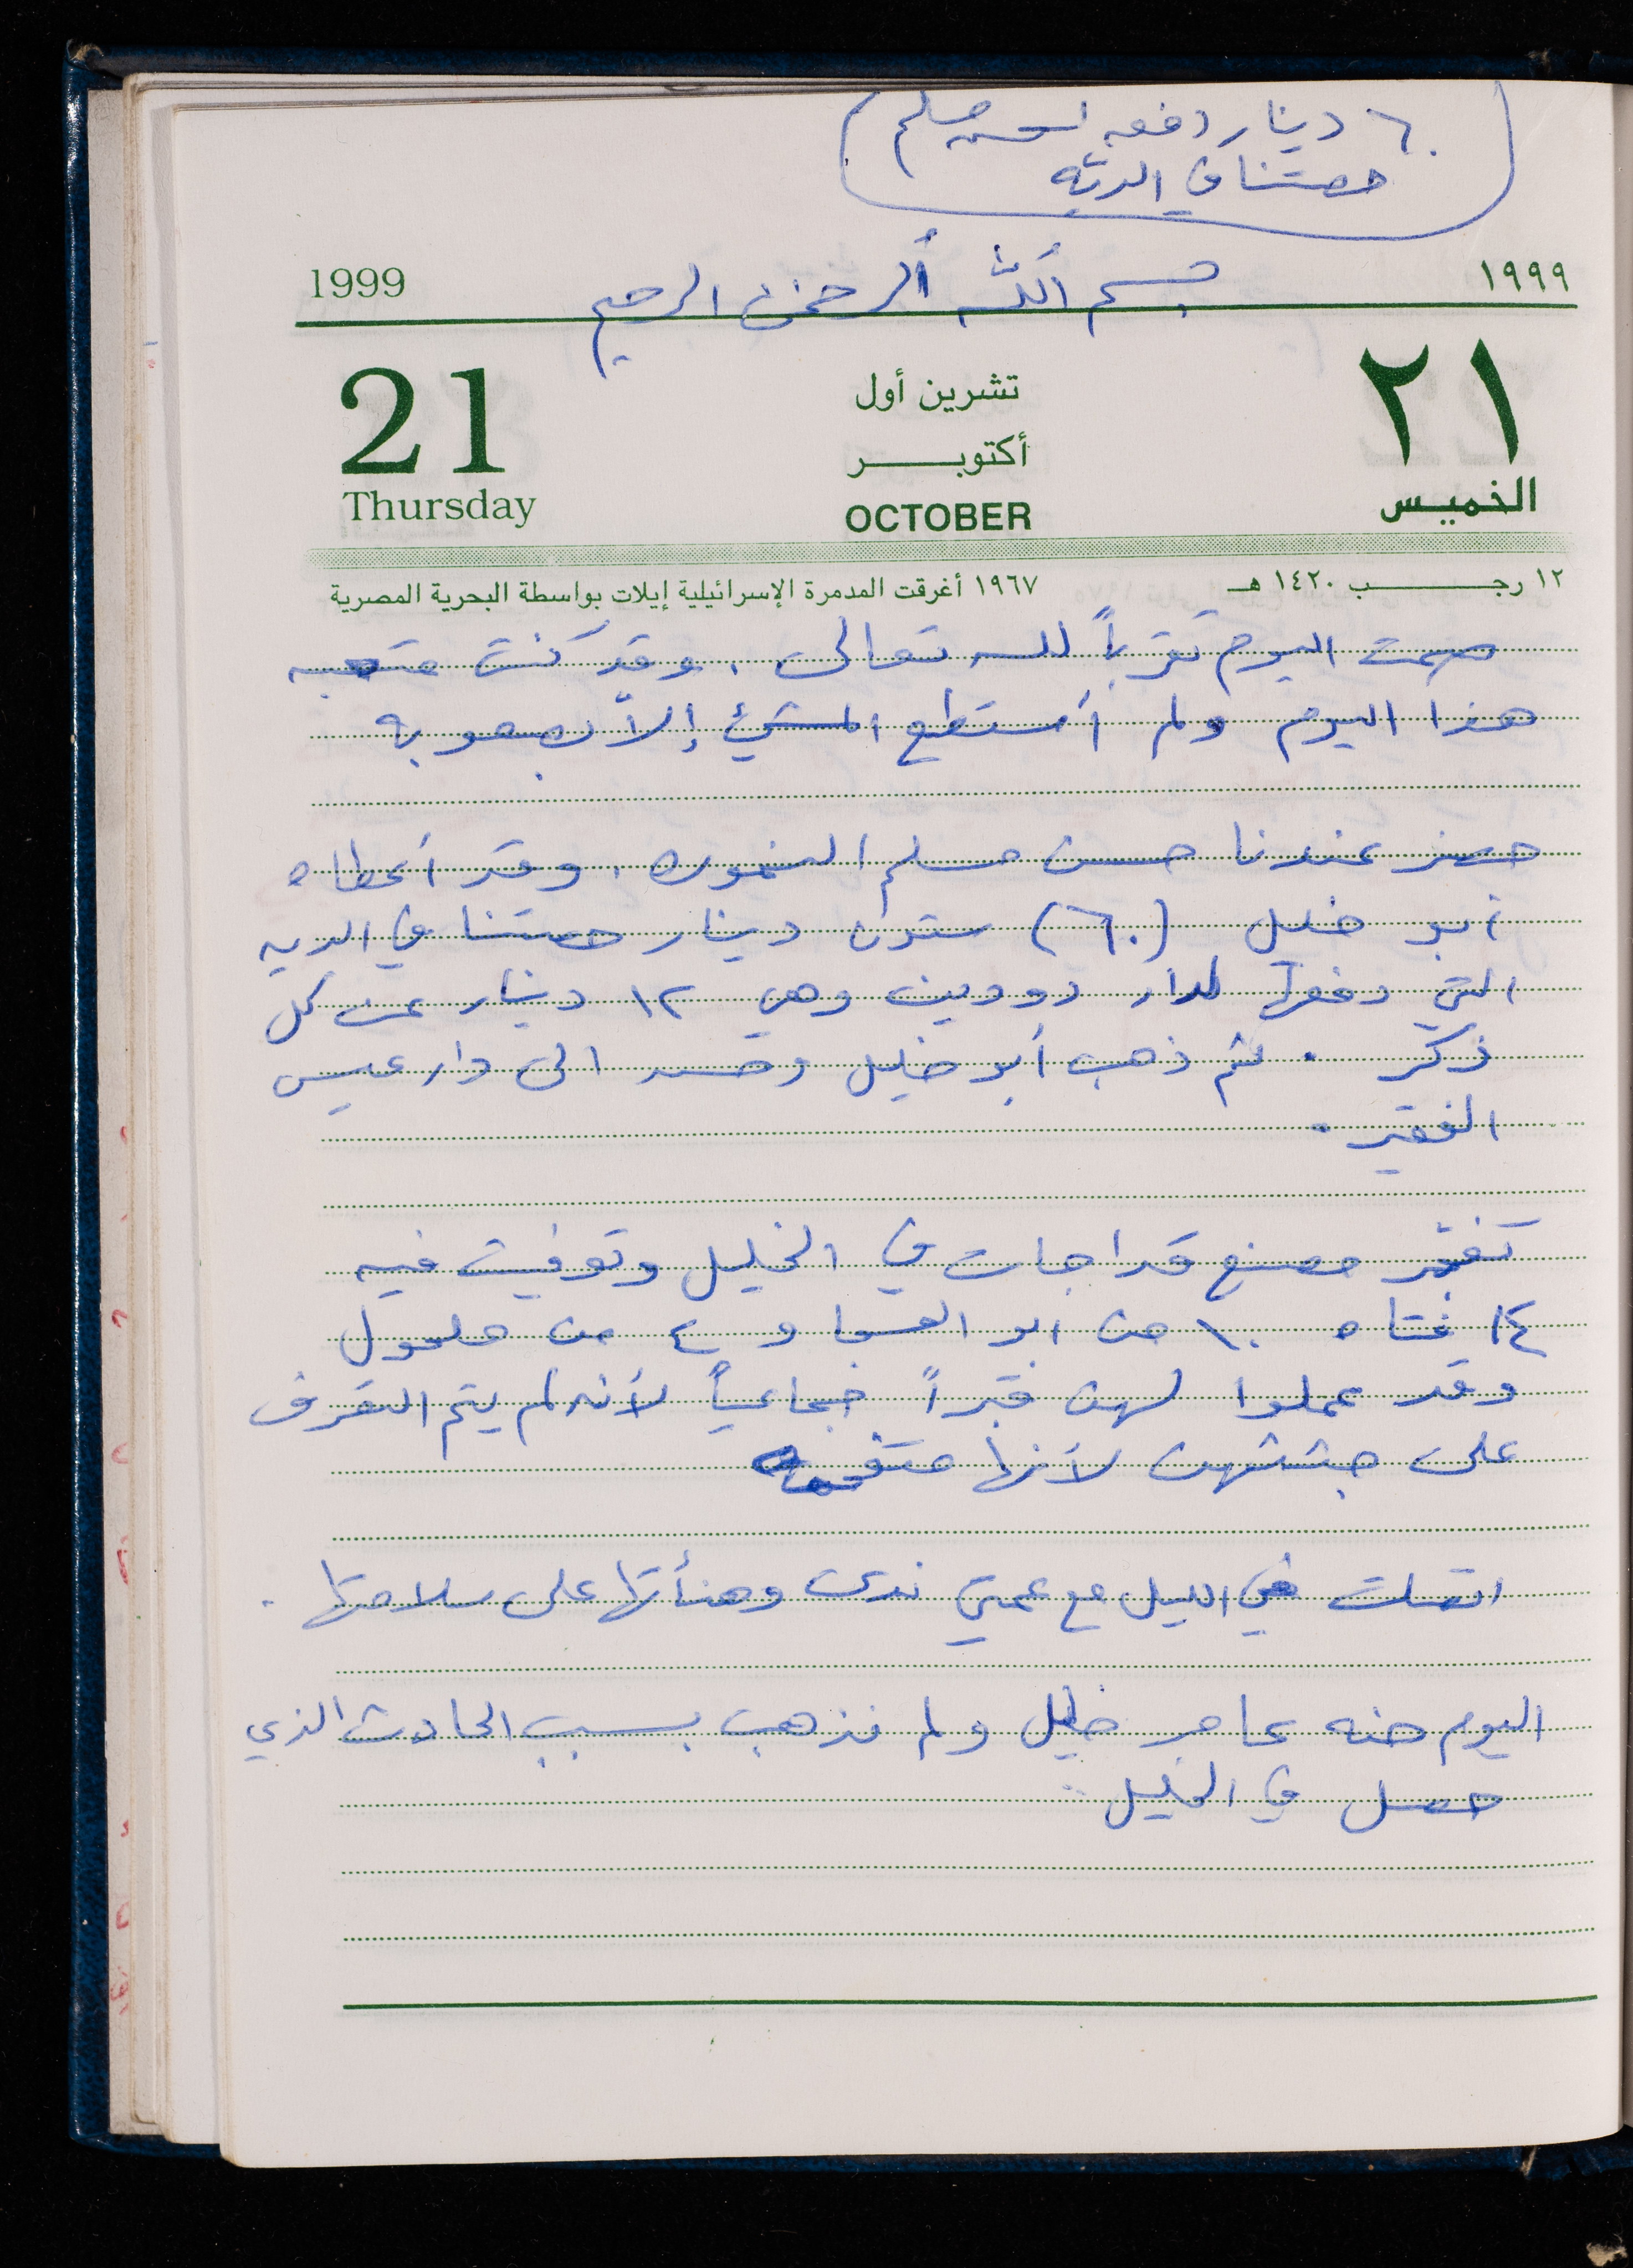 ٦٠ دينار دفعه لحسن مسلم
حصتنا في الديّه
1999
بسم الله الرحمن الرحيم
١٩٩٩
21
تشرين أول
٢١
أكتوبـــر
Thursday
OCTOBER
الخميس
١٢ رجـــب ١٤٢٠ هـ
١٩٦٧ أغرقت المدمرة الإسرائيلية إيلات بواسطة البحرية المصرية
صمت اليوم تقرباً لله تعالى . وقد كنت متعبه
هذا اليوم ولم أستطع المشيء إلاّ بصعوبه
حضر عندنا حسن مسلم النموره . وقد أعطاه
أبو خليل (٦٠) ستون دينار حصتنا في الديه
التي دفعوها لدار دودين وهي ١٢ دينار عن كل
ذكر . ثم ذهب أبو خليل وحسن الى دار عيسى
الفقير .
تفجر مصنع قداحات في الخليل وتوفيت فيه
١٤ فتاه ١٠ من ابو العسجا و ٤ من
وقد عملوا لهن قبراً جماعياً لأنه لم يتم التعرف
على جثثهن لأنها متفحمه
اتصلت في الليل مع عمتي ندى وهنأتها على سلامتها .
اليوم حنه عامر خليل ولم نذهب بسبب الحادث الذي
حصل في الخليل .